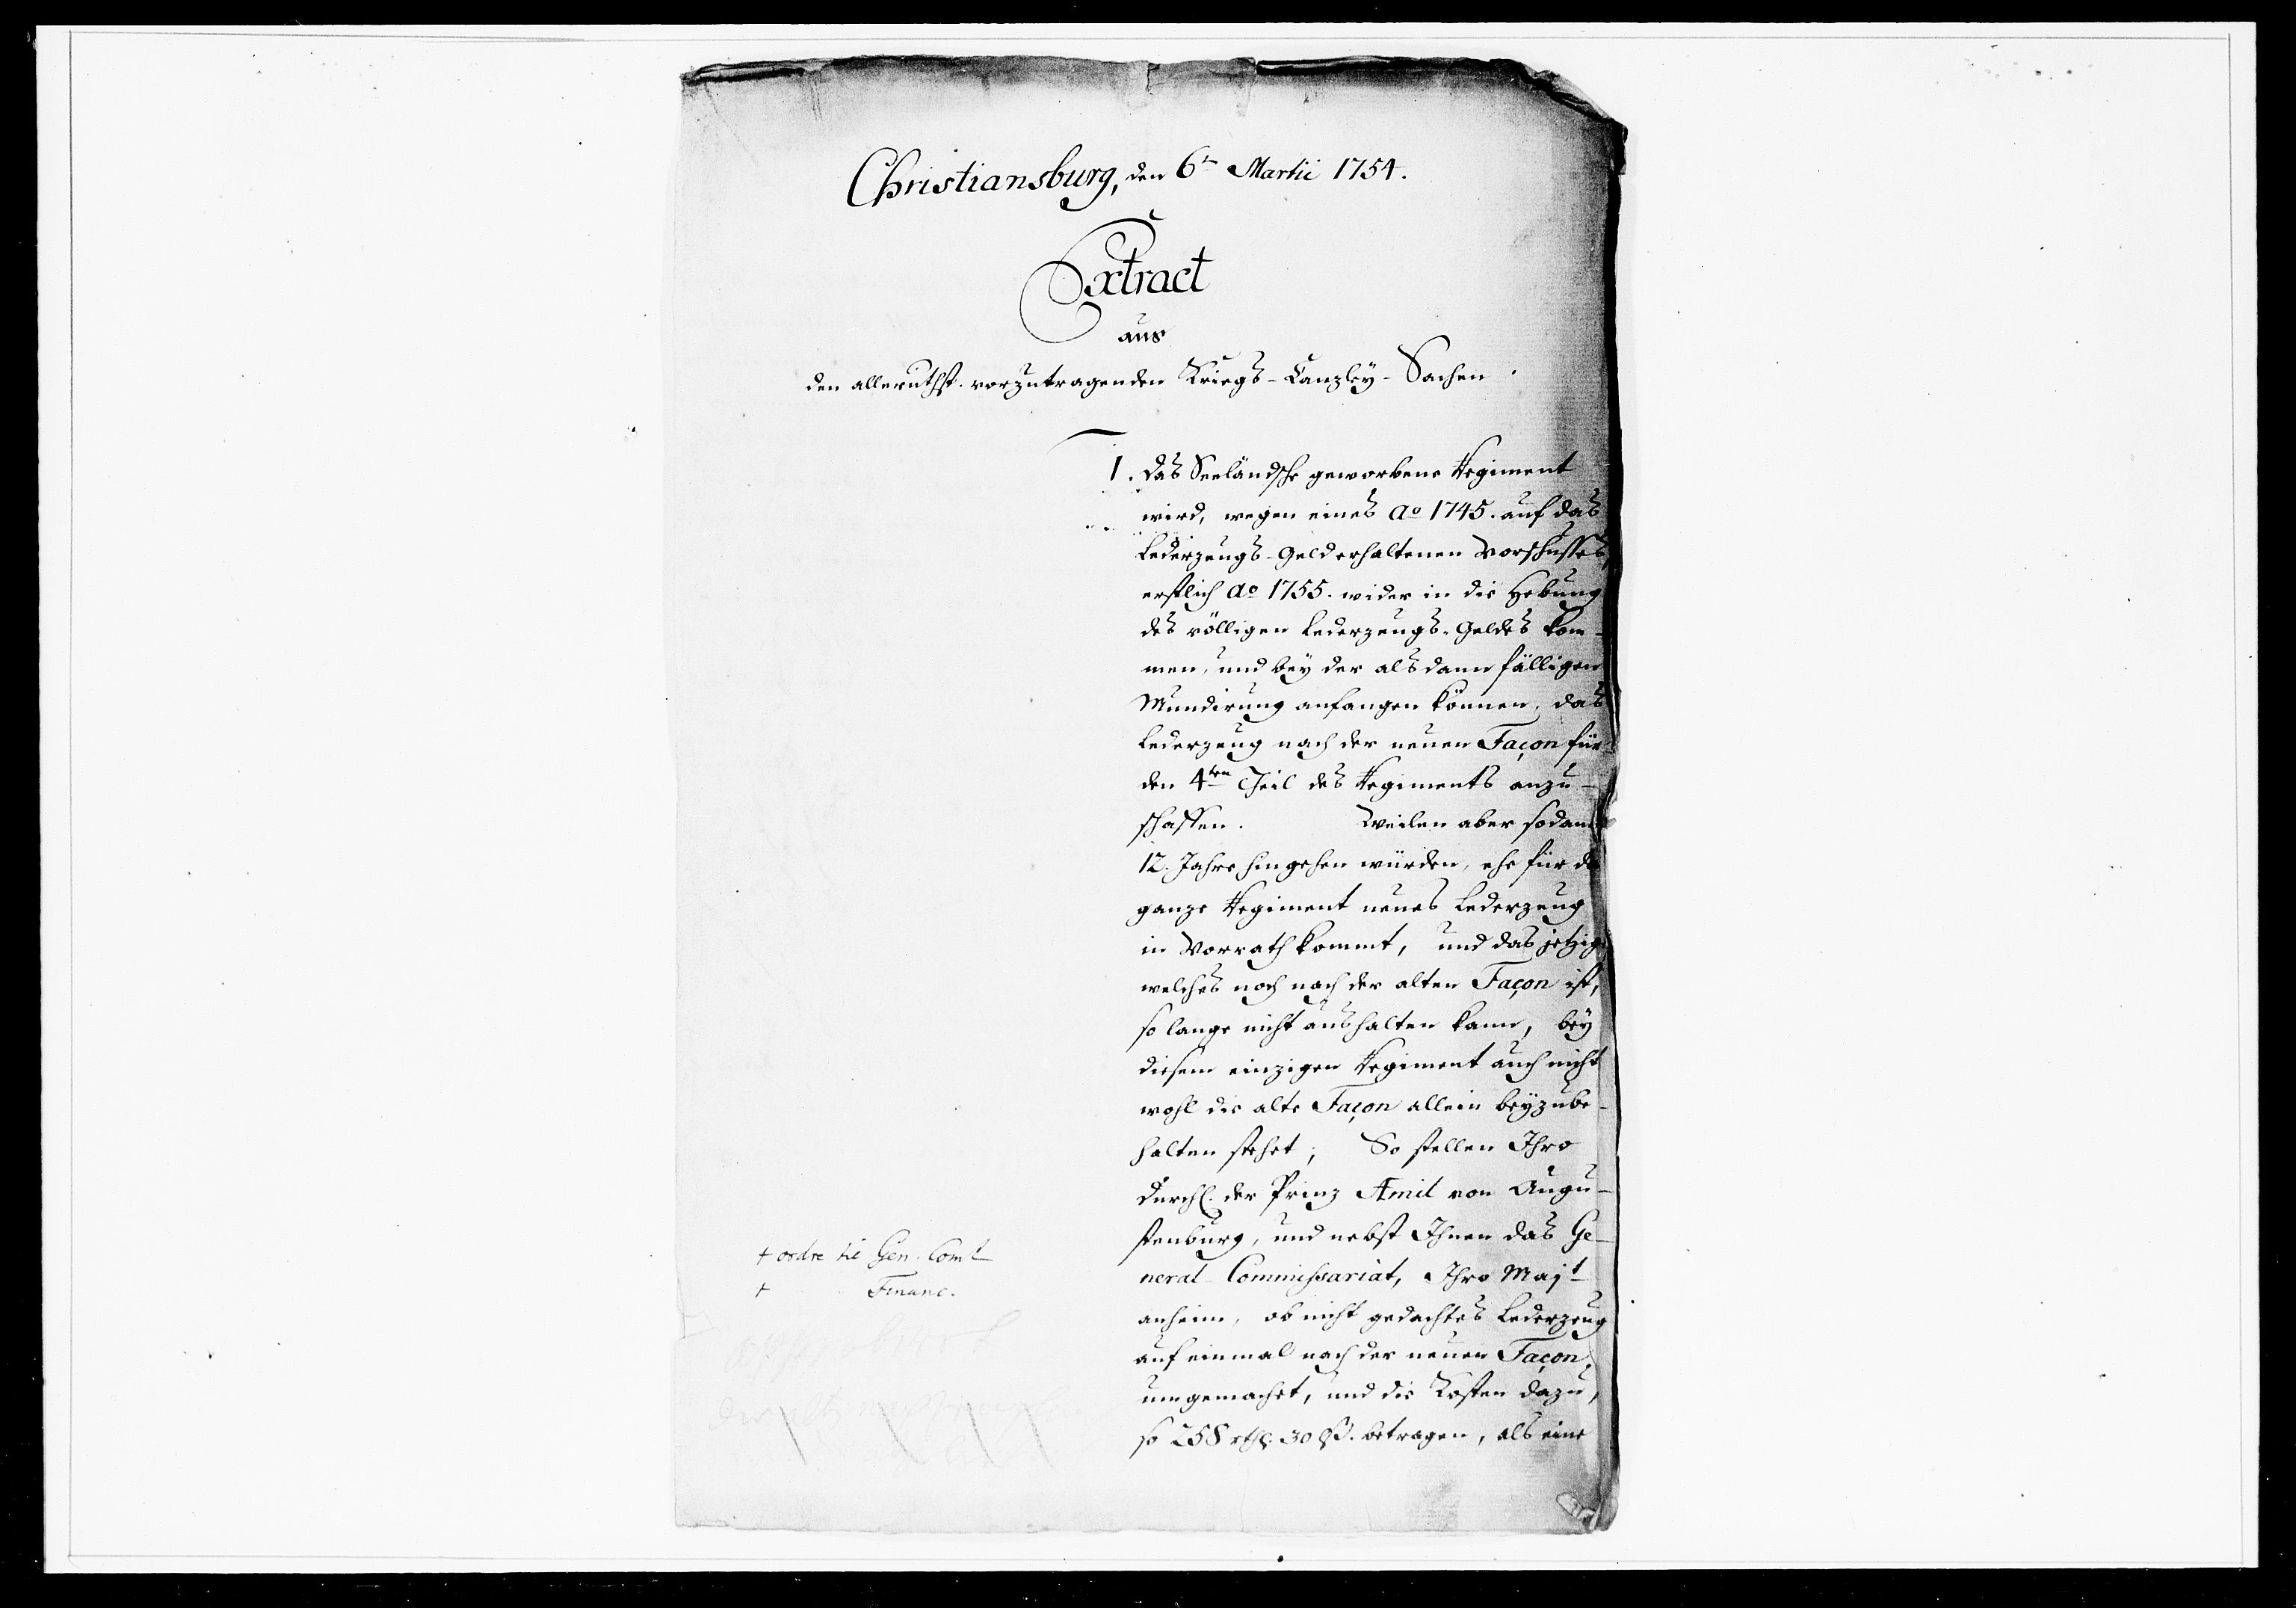 Christiansburg, den 6t Martii 1754.
Extract
aus
den allerunthst. vorzutragenden Kriegs-Canzley-Sachen.
1. Das Seeländsche geworbene Regiment
wird, wegen eines Ao 1745. auf das
Lederzeugs-Geld erhaltenen Vorschusses,
erstlich Ao 1755. wider in die Hebung
des völligen Lederzeugs-Geldes kom-
men, und bey der alsdann fälligen
Mundirung anfangen können, das
Lederzeug nach der neuen Façon für
den 4ten Theil des Regiments anzu-
schaffen. Weilen aber sodann
12. Jahre hingehen würden, ehe für das
ganze Regiment neues Lederzeug
in Vorrath kommt, und das jetzige
welches noch nach der alten Façon ist,
so lange nicht aushalten kann, bey
diesem einzigen Regiment auch nicht
wohl die alte Façon allein beyzube-
halten stehet; So stellen Ihro
Durchl. der Prinz Æmil von Augu-
stenburg, und nebst Ihnen das Ge-
neral-Commissariat, Ihro Majt
anheim, ob nicht gedachtes Lederzeug
auf einmal nach der neuen Façon,
umgemachet, und die Kosten dazu,
so 258 rthl. 30 ß. betragen, als eine
+ ordre til Gen. Comt
+ Financ.